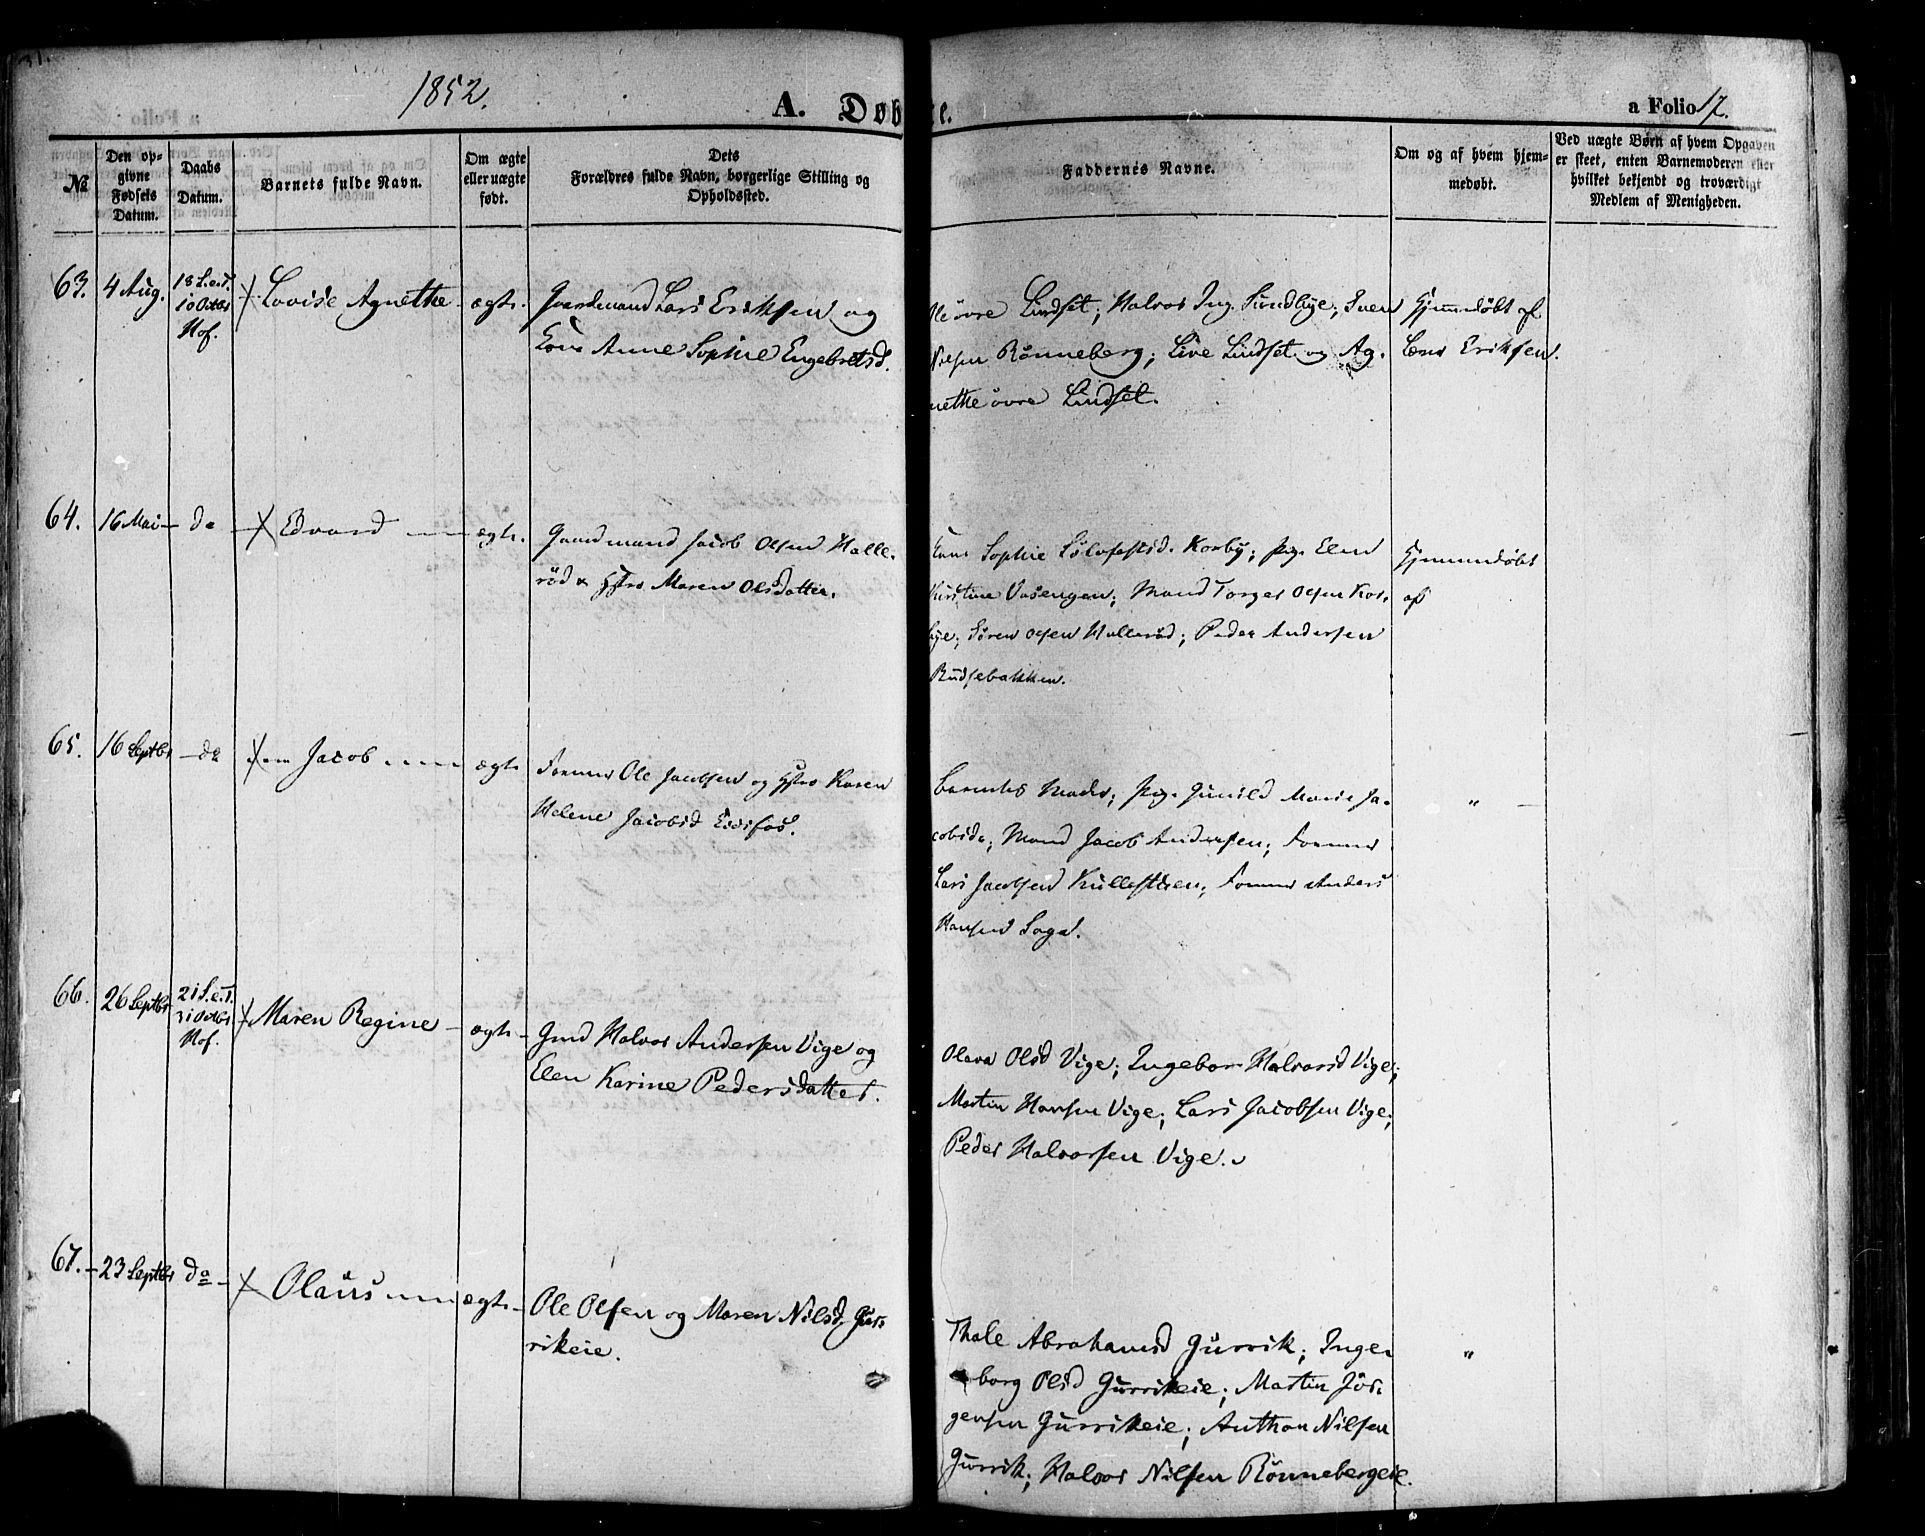 1852.
A. Døb
te.
a Folio 17.
№
Den op-
givne
Fødsels
Datum.
Daabs
Datum.
Barnets fulde Navn.
Om ægte
eller uægte
født.
Dets
Forældres fulde Navn, borgerlige Stilling og
Opholdssted.
Faddernes Navne.
Om og af hvem hjem-
medøbt.
Ved uægte Børn af hvem Opgaven
er skeet, enten Barnemoderen eller
hvilket bekjendt og troværdigt
Medlem af Menigheden.
63.
4 Aug.
18 S.e.T.
10 Octbr
Hof.
Lovise Agnethe
ægte
Gaardmand Lars Eriksen og
Kone Anne Sophie Engebretsd.
Ole øvre Lindset; Halvor Ing. Sundbye; Iver
Nilsen Rönneberg; Live Lindset og Ag-
nethe övre Lindset.
Hjemmedøbt af
Lars Eriksen.
64.
16 Mai
do
Edvard
ægte.
Gaardmand Jacob Olsen Halle-
röd & Hstr Maren Olsdatter.
Kone Sophie Sölvfestsd. Korby; Pig. Elen
Kirstine Vasengen; Mand Torger Olsen Kor-
bye; Sören Olsen Halleröd; Peder Andersen
Rudsebakken.
Hjemmedøbt
af
65.
16 Septbr
do
Jacob
ægte
Former Ole Jacobsen og Hstr Karen
Helene Jacobsd Eidsfos.
Barnets Moder; Pig. Gunild Marie Ja-
cobsd.; Mand Jacob Andersen; Former
Lars Jacobsen Kullestuen; Former Anders
Hansen Saga.
"
66.
26 Septbr
21 S.e.T.
31 Octbr
Hof.
Maren Regine
ægte
Gmd Halvor Andersen Vige og
Elen Karine Pedersdatter.
Olava Olsd Vige; Ingebor Halvorsd Vige;
Martin Hansen Vige; Lars Jacobsen Vige;
Peder Halvorsen Vige.
67.
23 Septbr
do
Olaus
ægte
Ole Olsen og Maren Nilsd Gur-
rikeie.
Thale Abrahamsd Gurrik; Inge-
borg Olsd Gurrikeie; Martin Jör-
gensen Gurrikeie; Anthon Nilsen
Gurrik; Halvor Nilsen Rönnebergeie.
"